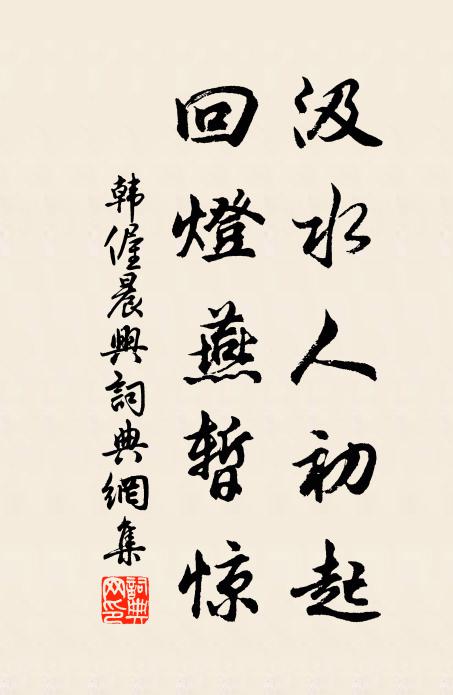 汲水人初起
回燈燕暫惊
韩偓晨興詞典網集
詞典網印